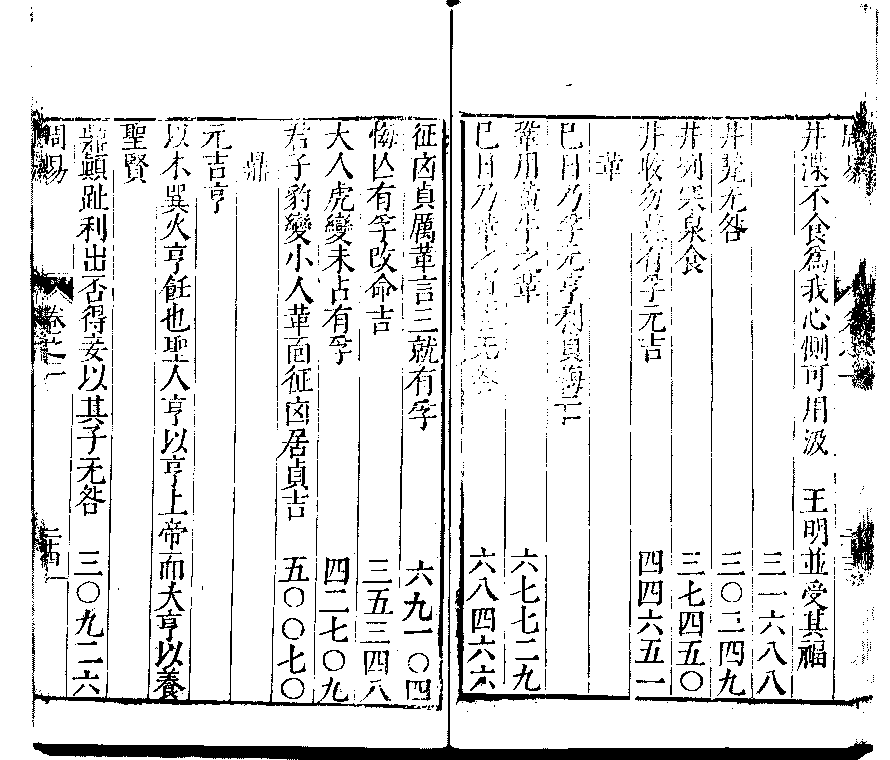 周易
井渫不食為我心惻可用汲　王明並受其福
三一六八八
井甃无咎　三〇二四九
井冽寒泉食　三七四五〇
井收勿幕有孚元吉　四四六五一
革
巳日乃孚元亨利貞悔亡
鞏用黃牛之革　六七七二九
巳日乃革之征吉无咎　六八四六六
征凶貞厲革言三就有孚　六九一〇四
悔亾有孚改命吉　三五三四八
大人虎變未占有孚　四二七〇九
君子豹變小人革面征凶居貞吉　五〇〇七〇
鼎
元吉亨
以木巽火亨飪也聖人亨以亨上帝而大亨以養
聖賢
鼎顛趾利出否得妾以其子无咎　三〇九二六
周易　卷之一　二十四